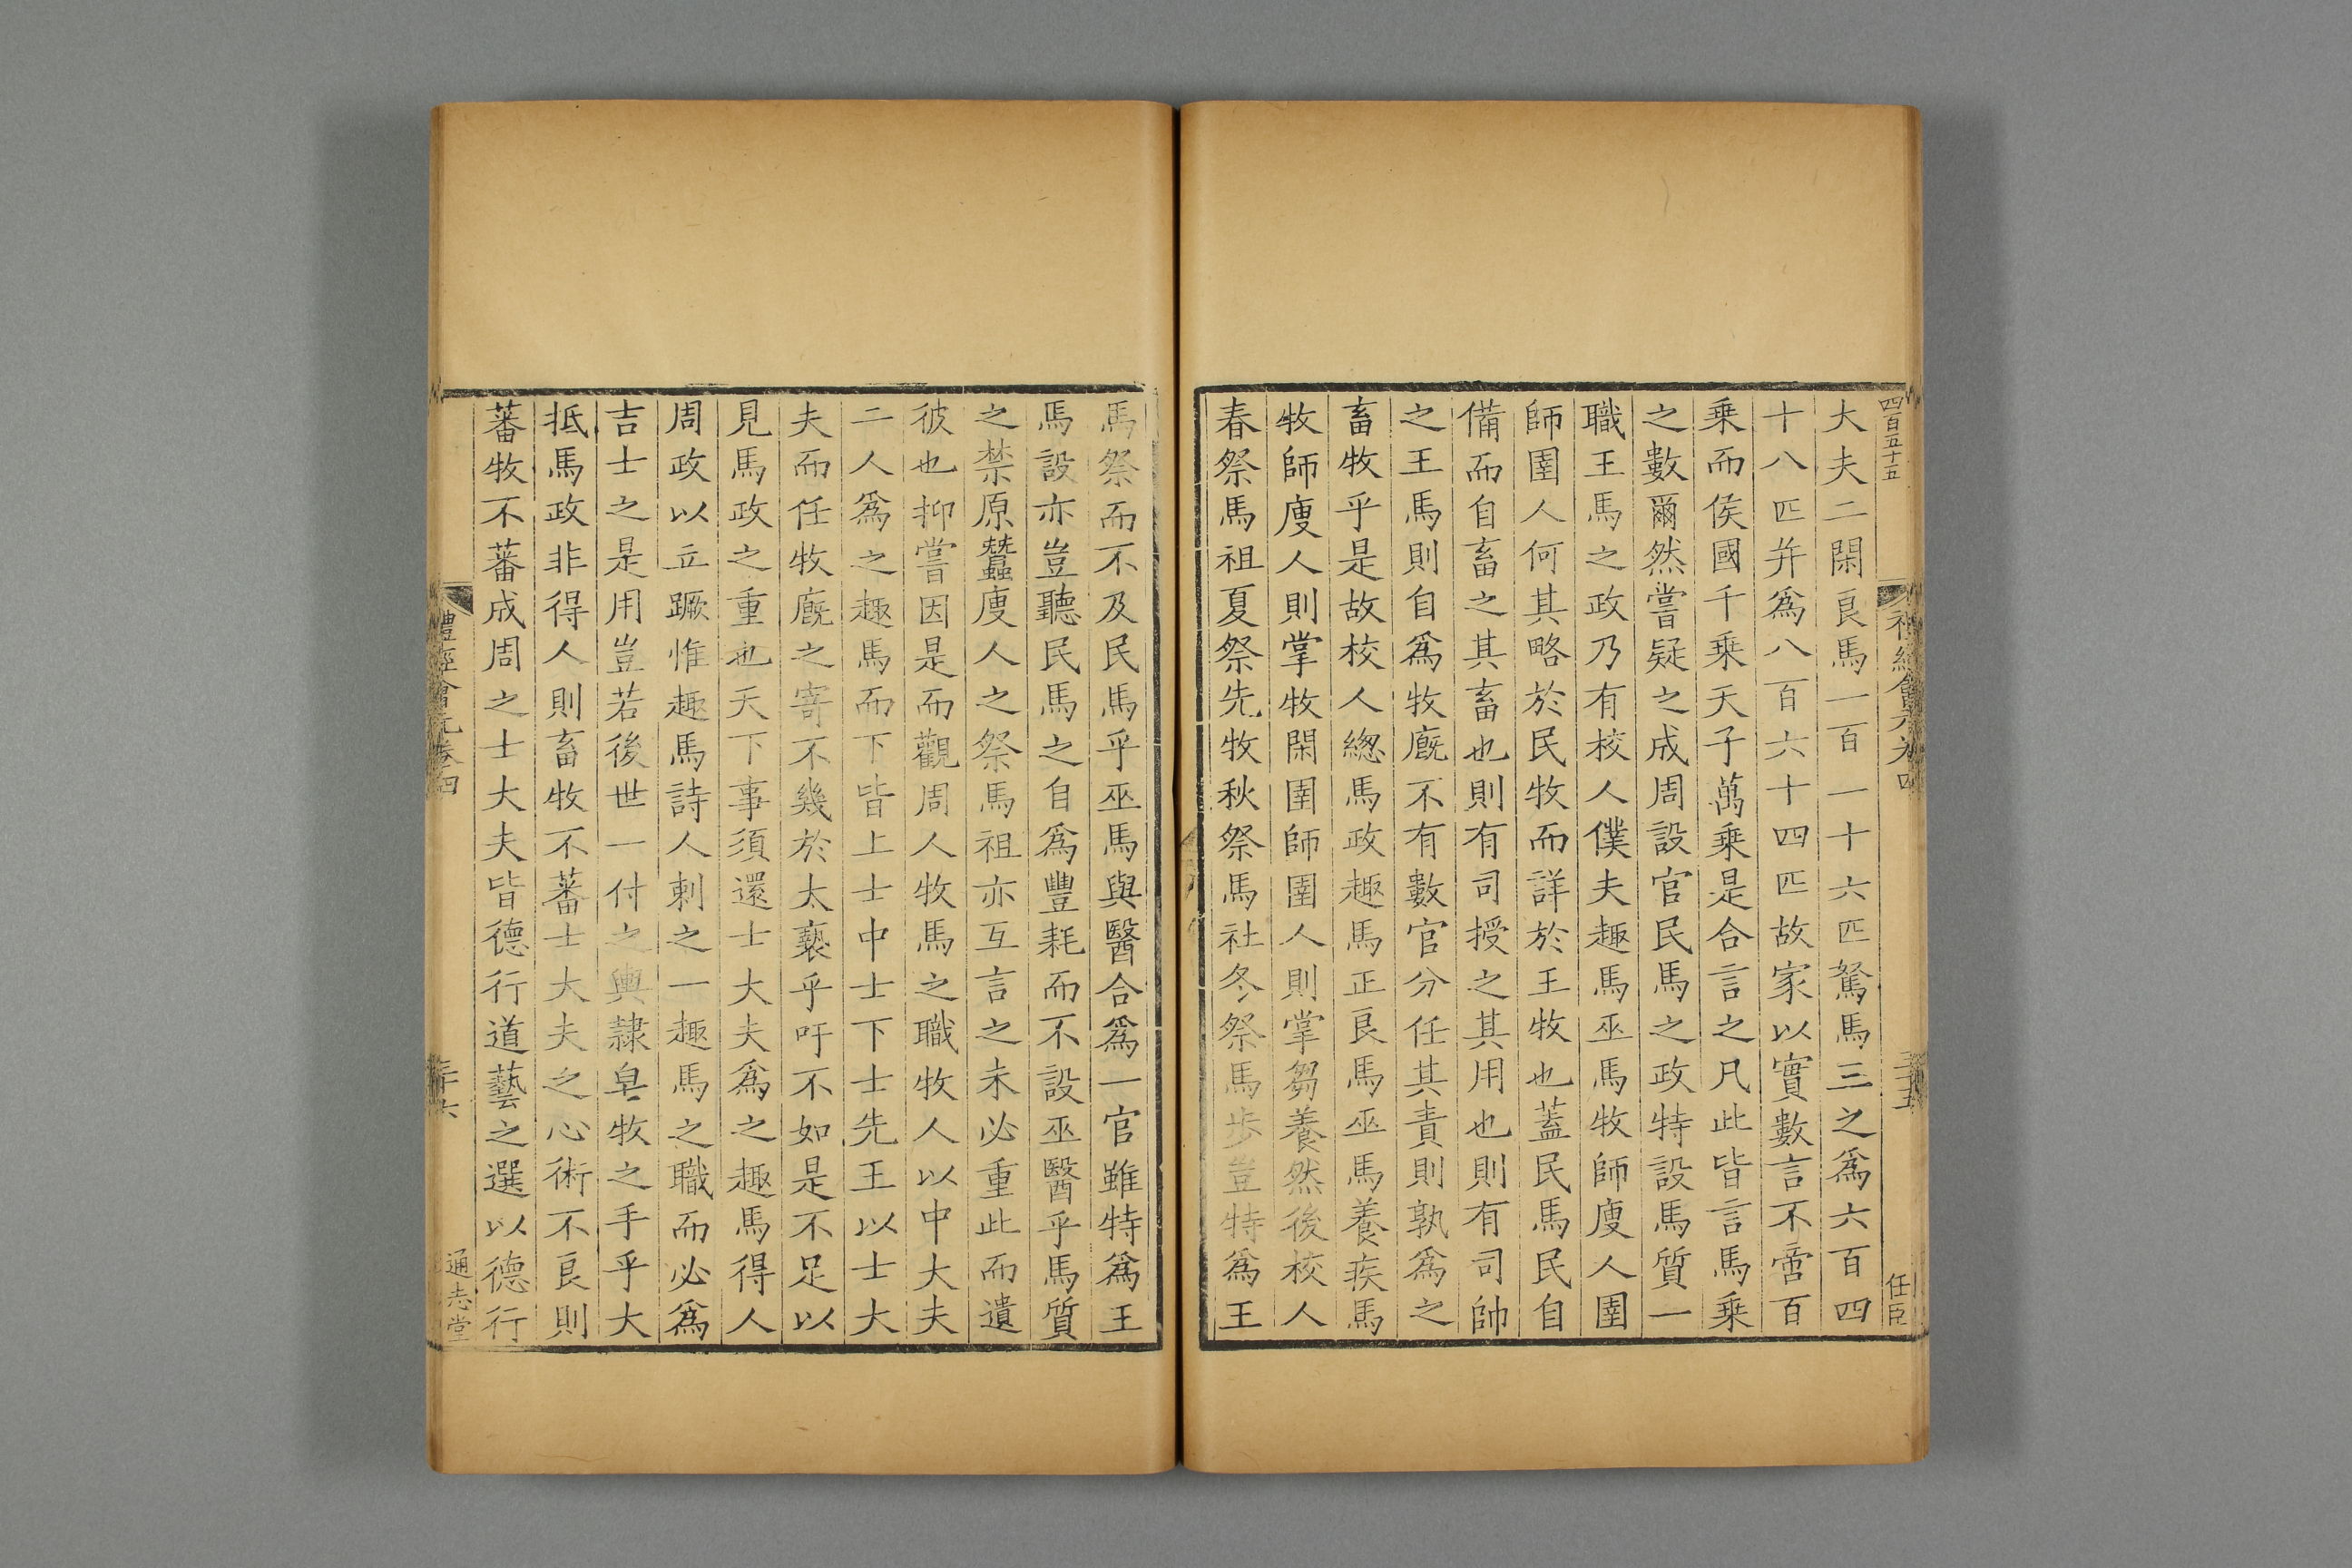 四百五十五
任臣
大夫二閑良馬一百一十六匹駑馬三之爲六百四
十八匹并爲八百六十四匹故家以實數言不啻百
乗而侯國千乗天子萬乗是合言之凡此皆言馬乗
之數爾然嘗疑之成周設官民馬之政特設馬質一
職王馬之政乃有校人僕夫趣馬巫馬牧師廋人圉
師圉人何其略於民牧而詳於王牧也蓋民馬民自
備而自畜之其畜也則有司授之其用也則有司帥
之王馬則自爲牧廐不有數官分任其責則孰爲之
畜牧乎是故校人緫馬政趣馬正良馬巫馬養疾馬
牧師廋人則掌牧閑圉師圉人則掌芻養然後校人
春祭馬祖夏祭先牧秋祭馬社冬祭馬步豈特爲王
馬祭而不及民馬乎巫馬與醫合爲一官雖特爲王
馬設亦豈聽民馬之自爲豐耗而不設巫醫乎馬質
之禁原蠶廋人之祭馬祖亦互言之未必重此而遺
彼也抑嘗因是而觀周人牧馬之職牧人以中大夫
二人爲之趣馬而下皆上士中士下士先王以士大
夫而任牧廐之寄不幾於太褻乎吁不如是不足以
見馬政之重也天下事須還士大夫爲之趣馬得人
周政以立蹶惟趣馬詩人刺之一趣馬之職而必爲
吉士之是用豈若後世一付之輿隸皁牧之手乎大
抵馬政非得人則畜牧不蕃士大夫之心術不良則
蕃牧不蕃成周之士大夫皆德行道藝之選以德行
禮經會元卷四
二十六
通志堂